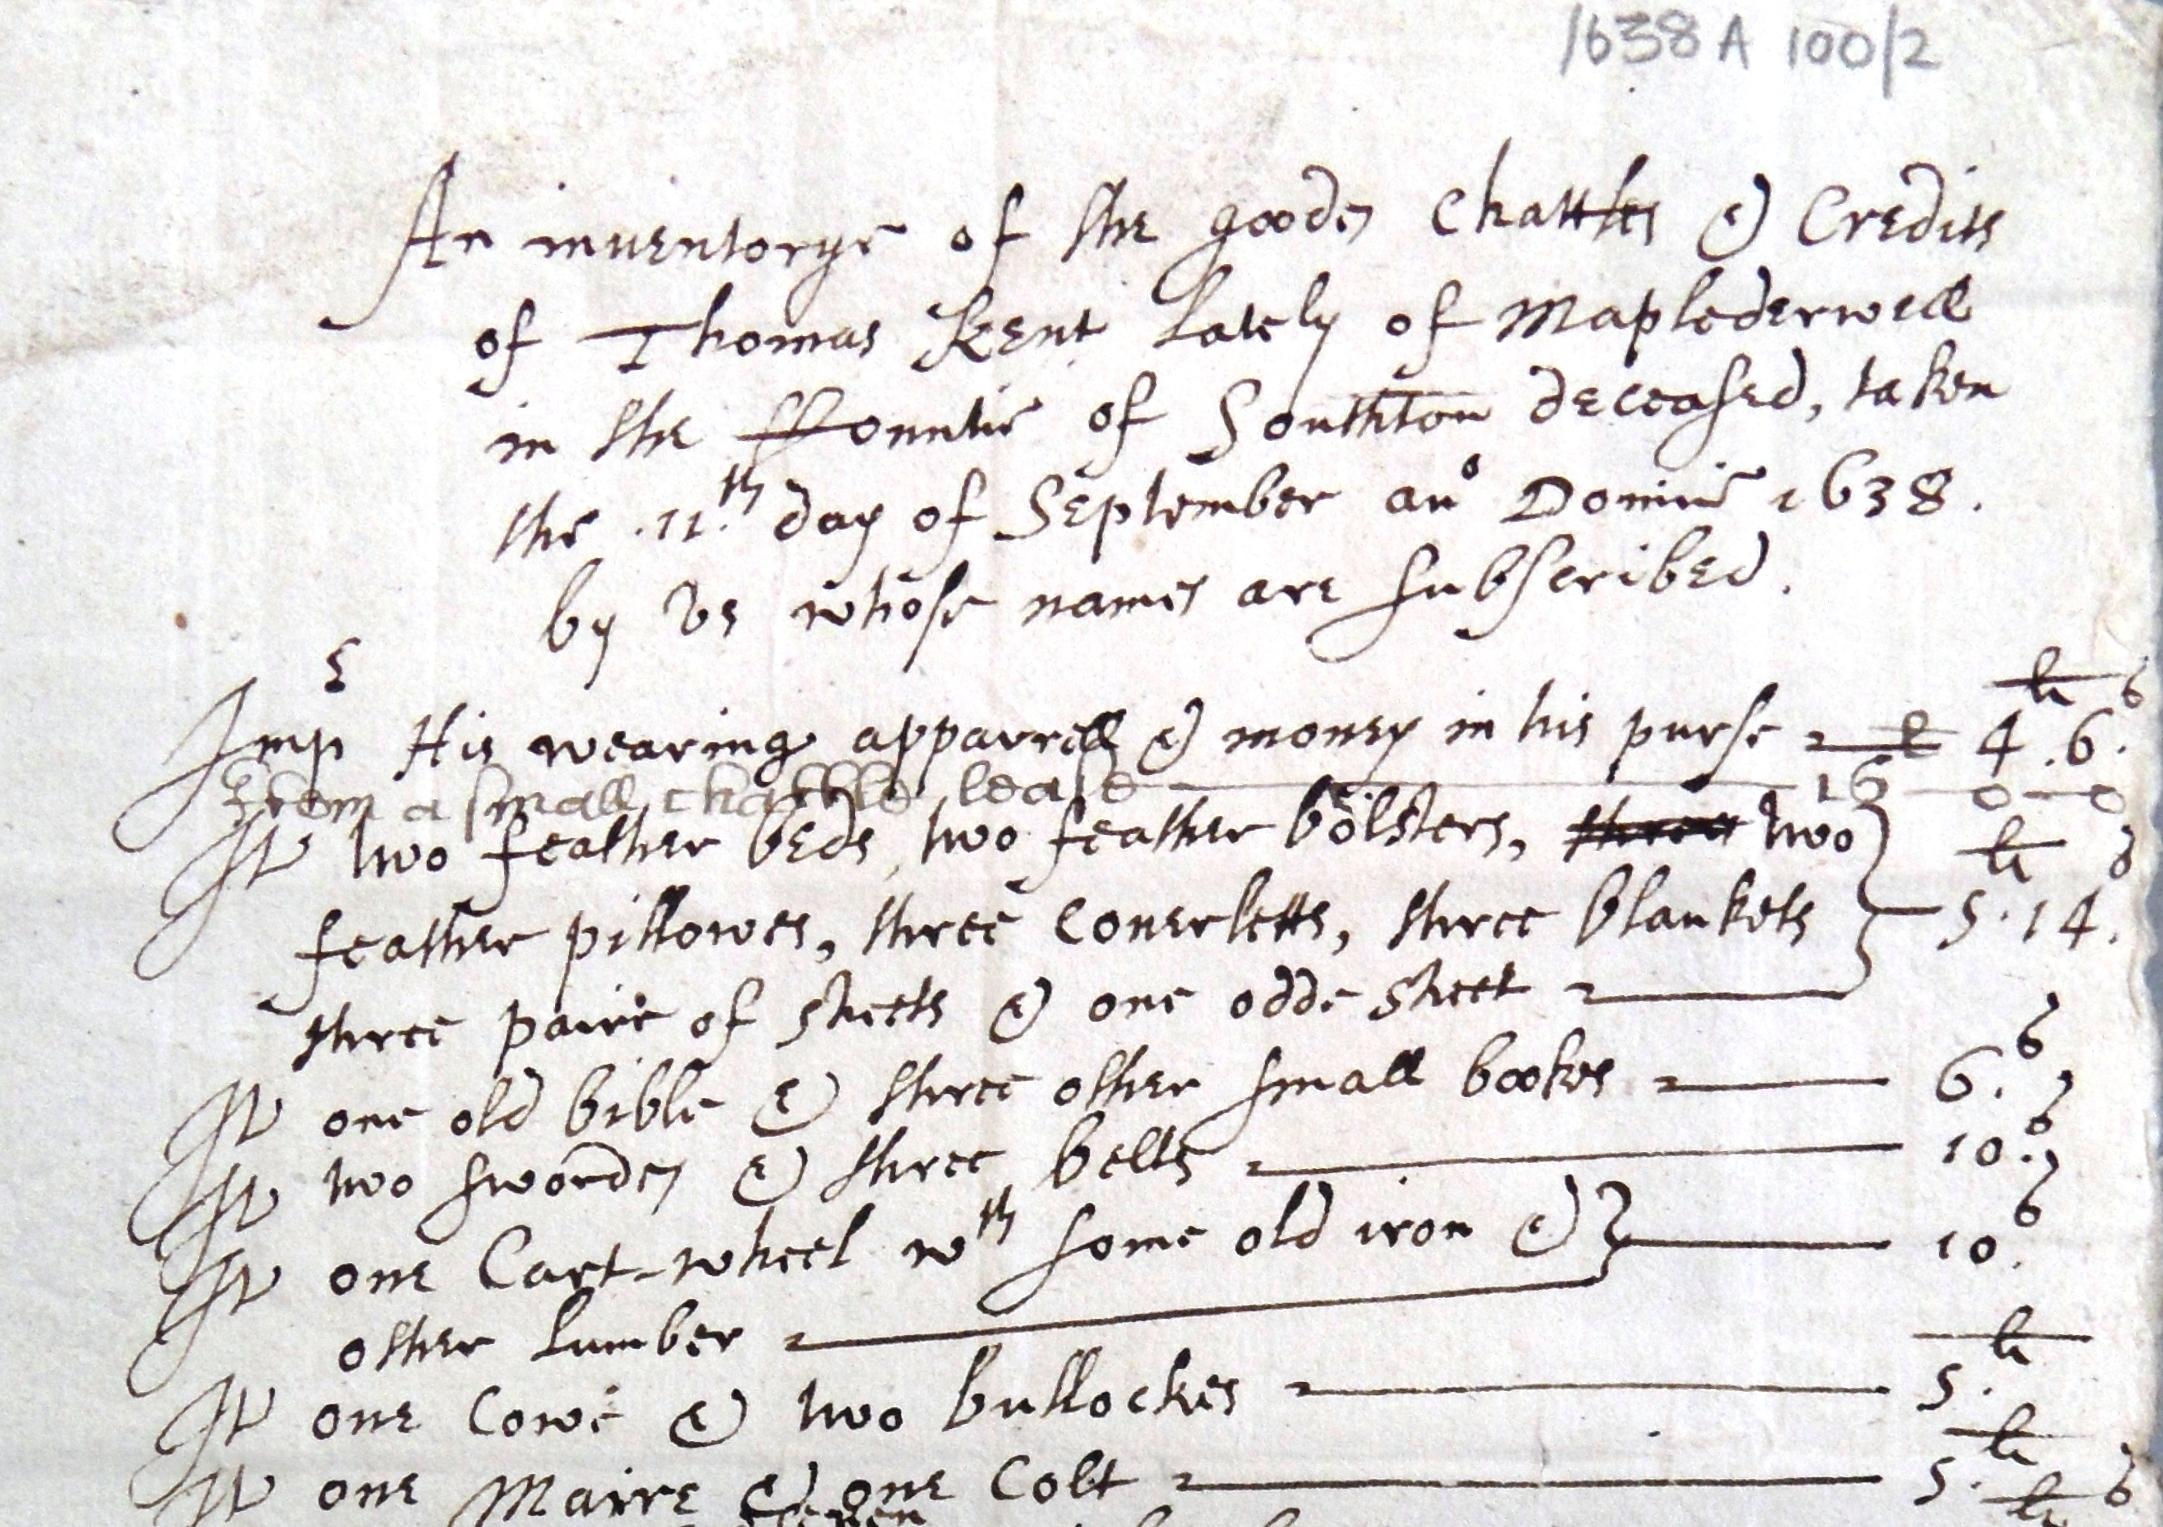 1638 A 100/2
An inuentorye of the goodes Chattles & Credits
of Thomas Kent Lately of Maplederwell
in the Countie of Southton deceased, taken
the .11.th day of September ano Domini 1638.
by Vs whose names are subscribed.
Imp His wearing apparrell & money in his purse li s 4.6.
Item a small chattle lease 16-0-0
It two feather beds, two feather bolsters, three two li s
feather pillowes, three Couerletts, three blankets 5.14.
three paire of sheets & one odde sheet
It one old bible & three other small bookes 6.s
It two swordes & three belts 10.s
It one Cart-wheel wth some old iron & 10.s
other Lumber
It one Cowe & two bullockes 5.li
It one Maire & one Colt 5.li
eleven